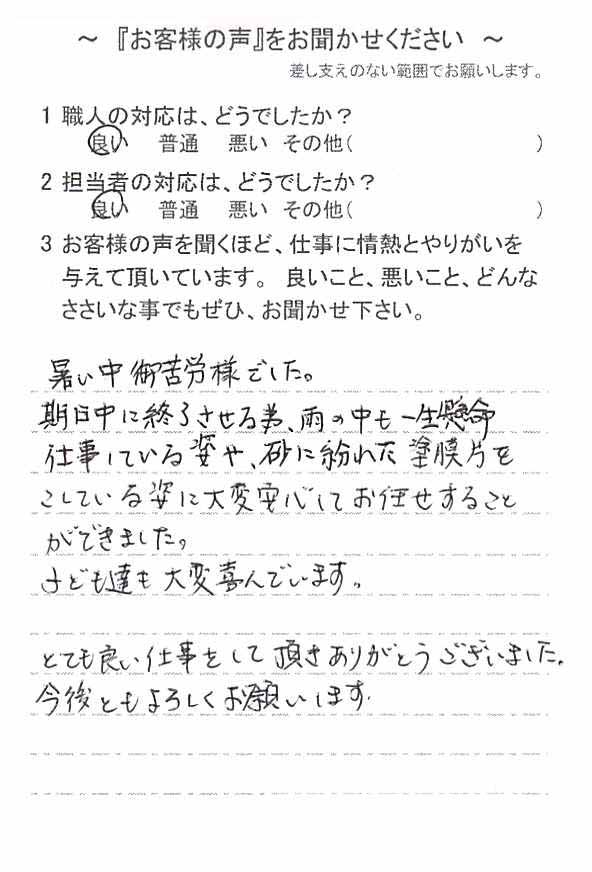 ～ 『お客様の声』をお聞かせください ～
差し支えのない範囲でお願いします。
1 職人の対応は、どうでしたか？
良い 普通 悪い その他( )
2 担当者の対応は、どうでしたか？
良い 普通 悪い その他( )
3 お客様の声を聞くほど、仕事に情熱とやりがいを
与えて頂いています。 良いこと、悪いこと、どんな
ささいな事でもぜひ、お聞かせ下さい。
暑い中御苦労様でした。
期日中に終了させる為、雨の中も一生懸命
仕事している姿や、砂に紛れた塗膜片を
こしている姿に大変安心してお任せすること
ができました。
子ども達も大変喜んでいます。
とても良い仕事をして頂きありがとうございました。
今後ともよろしくお願いします.